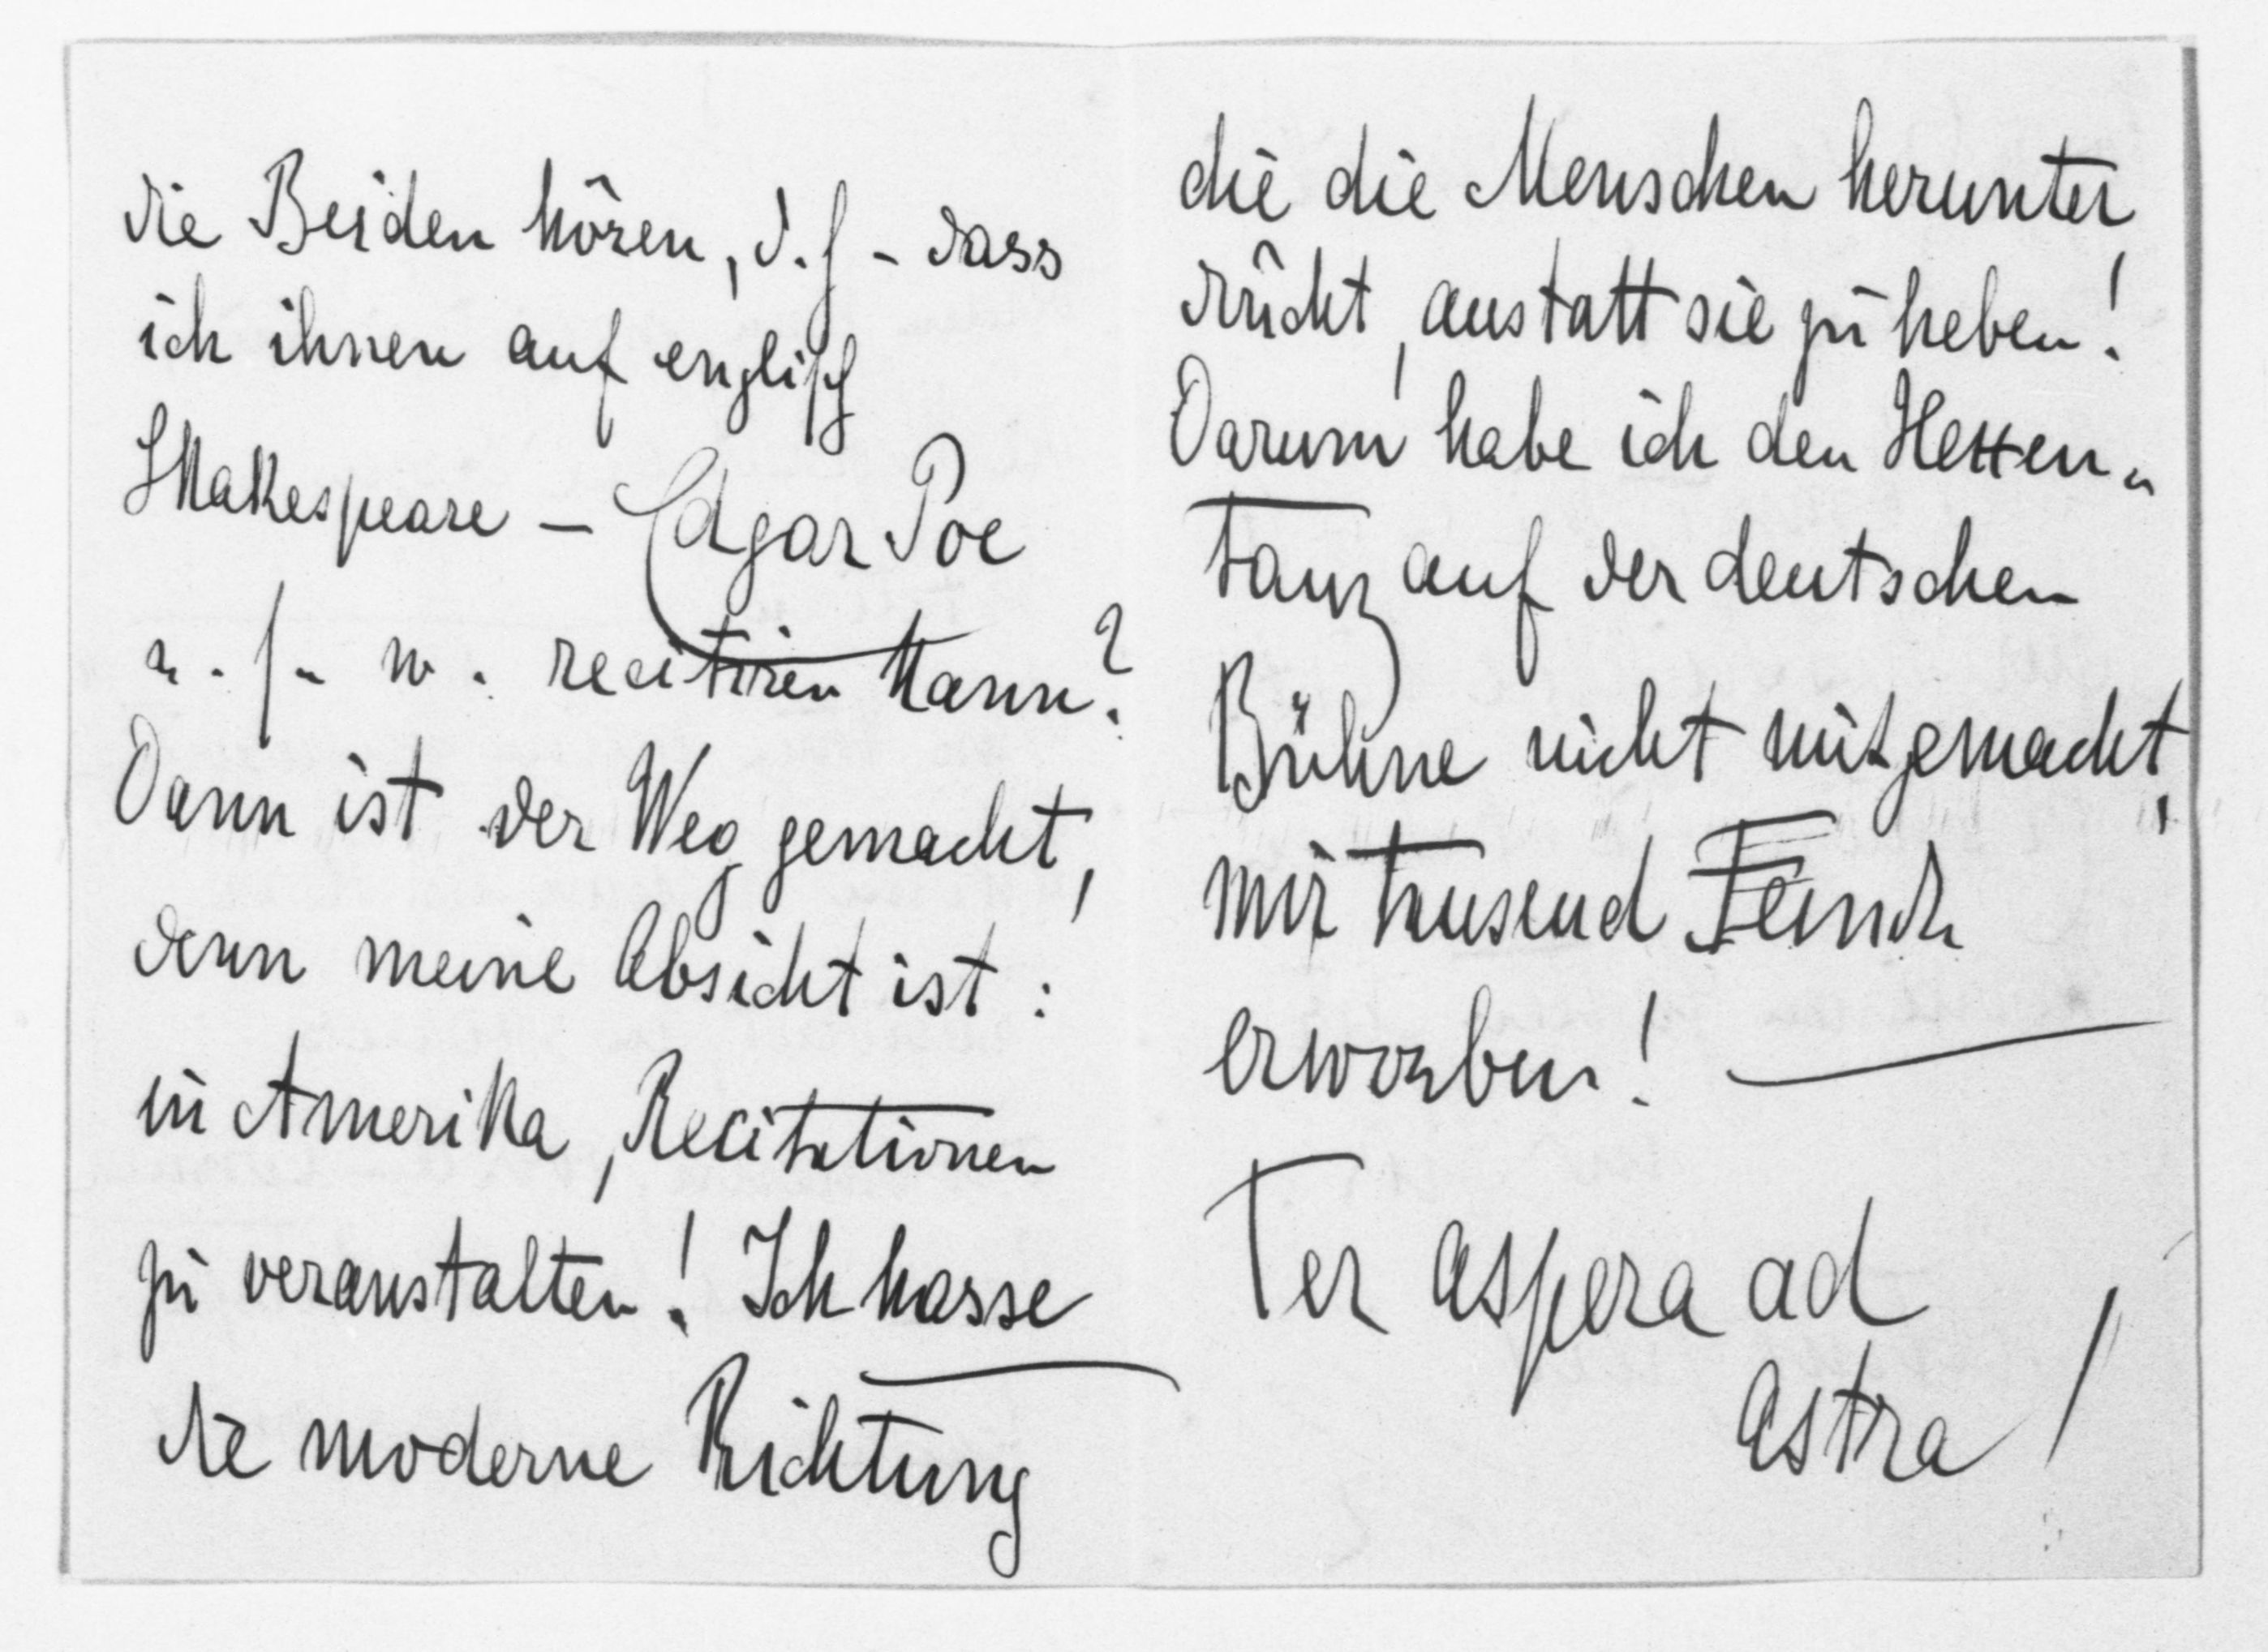 die Beiden hören, d. h - dass
ich ihnen auf englisch
Shakespeare - Edgar Poe
u. s. w. recitiren kann?
Dann ist der Weg gemacht,
denn meine Absicht ist:
in Amerika, Recitationen
zu veranstalten! Ich hasse
die moderne Richtung
die die Menschen herunter
drückt, anstatt sie zu heben!
Darum habe ich den Hexen-
tanz auf der deutschen
Bühne nicht mitgemacht,
mir tausend Feinde
erworben! —
Per aspera ad
astra!